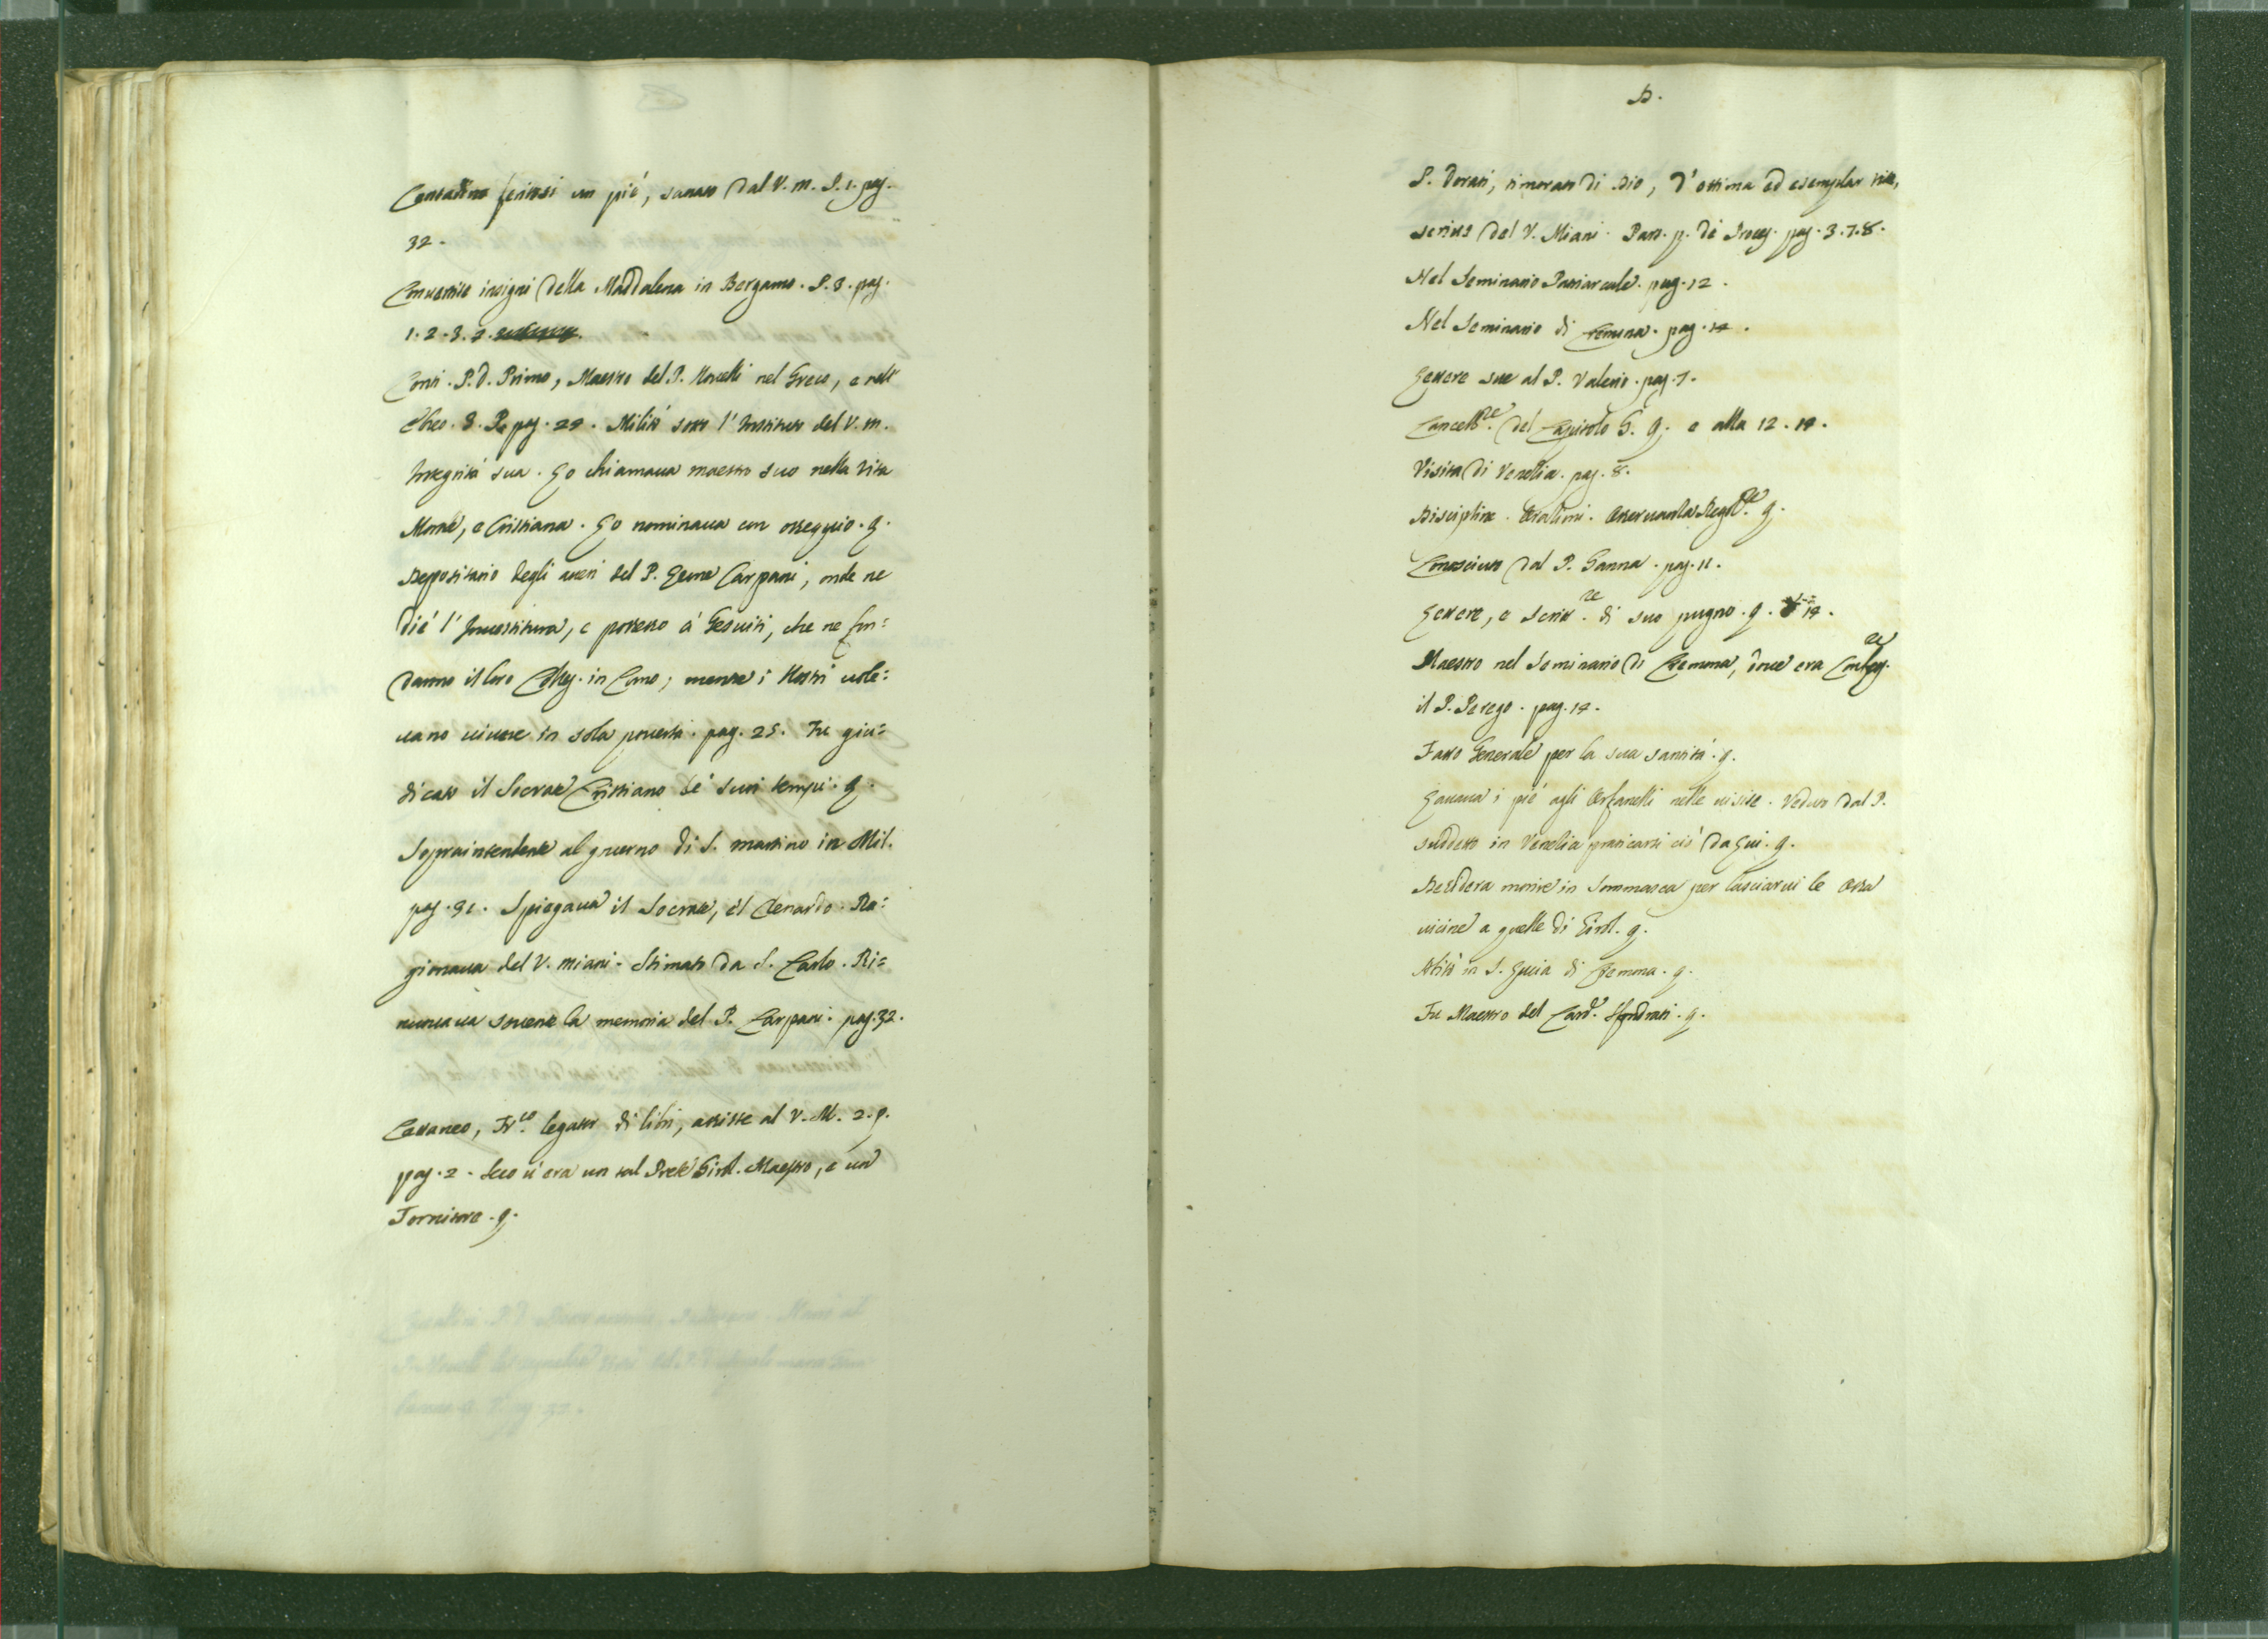 Contadino feritosi un piè, sanato dal V. m. P. 1. pag.
32.
Convertite insigni della Maddalena in Bergamo. P. 3. pag.
1. 2. 3.
Conti. P. d. Primo, Maestro del P. Novelli nel Greco, e nell'
Ebreo. pag. 29. Militò sotto l'Instituto del V. m.
Integrità sua. Lo chiamava maestro suo nella vita
Morale, e Cristiana. Lo nominava con osseqquio. q.
Depositario degli averi del P. Leone Carpani, onde ne
diè l'Investitura, e possesso a' Gesuiti, che ne fon:
darono il loro Colleg. in Como; mentre i Nostri vole:
vano vivere in sola povertà. pag. 25. Fu giu:
dicato il Socrate Cristiano de' suoi tempi. q.
Sopraintendente al governo di S. Martino in Mil.
pag. 31. Spiegava il Socrate, il Clenardo. Ra:
gionava del V. Miani. Stimato da S. Carlo. Ri=
nunovava sovente la memoria del P. Carpani. pag. 32.
Cattaneo, Fr.co legator di libri, assiste al V. M. 2. p.
pag. 2. Seco v'era un tal Prete Girol. Maestro, e un
Tornitore. q.
D.
P. Dorati, timorato di Dio, d'ottima ed esemplar vita,
scrisse del V. Miani. Part. p. de Process. pag. 3. 7. 8.
Nel Seminario Patriarcale. pag. 12.
Nel Seminario di Cremona. pag. 14.
Lettere sue al P. Valerio. pag. 7.
Cancell.re del Capitolo G. q. e alla 12. 14.
Visita di Venetia. pag. 8.
Disciplina. Orationi. q.
Conosciuto dal P. Ganna. pag. 11.
Lettere, e Scritt.re di suo pugno. q. 14.
Maestro nel Seminario di Cremona, dove era
il P. Perego. pag. 14.
Fatto Generale per la sua santità. q.
Lavava i piè agli Orfanelli nelle visite. Veduto dal P.
suddetto in Venetia praticarsi ciò da Lui. q.
Desidera morire in Sommasca per lasciarvi le ossa
vicine a quelle di Girol. q.
Abitò in S. Lucia di Cremona. q.
Fu Maestro del Card. Sfondrati. q.